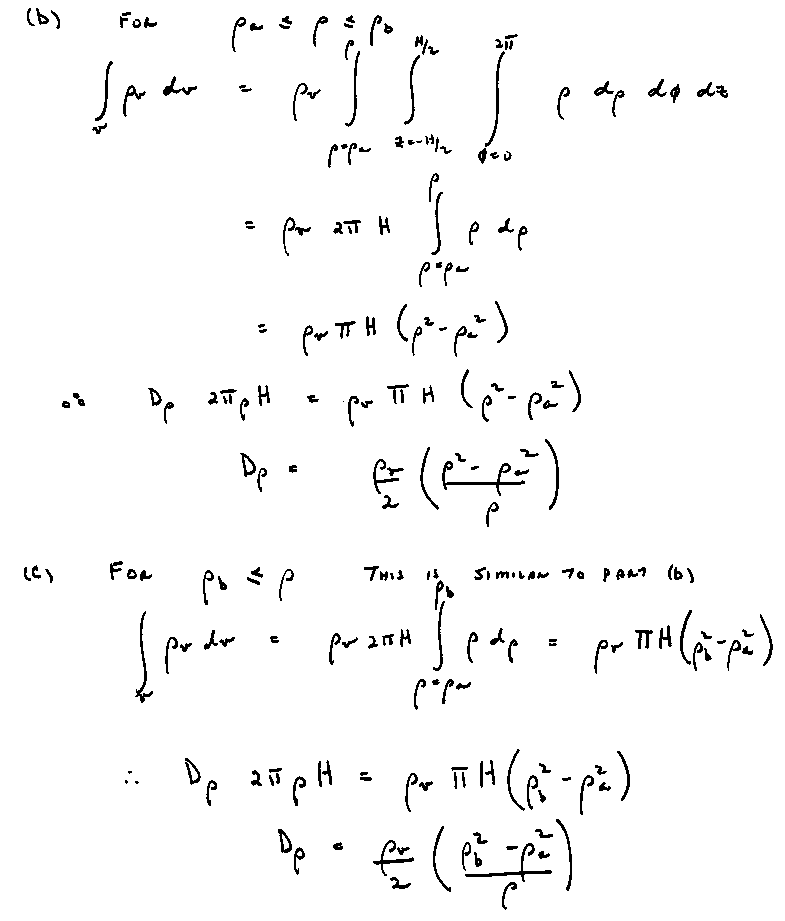 (b) FOR ρa ≤ ρ ≤ ρb
∫_v ρv dv = ρv ∫_{ρ=ρa}^{ρ} ∫_{z=-H/2}^{H/2} ∫_{φ=0}^{2π} ρ dρ dφ dz
= ρv 2π H ∫_{ρ=ρa}^{ρ} ρ dρ
= ρv π H (ρ² - ρa²)
∴ Dρ 2πρH = ρv π H (ρ² - ρa²)
Dρ = ρv/2 ((ρ² - ρa²)/ρ)
(c) FOR ρb ≤ ρ THIS IS SIMILAR TO PART (b)
∫_v ρv dv = ρv 2πH ∫_{ρ=ρa}^{ρb} ρ dρ = ρv πH(ρb² - ρa²)
∴ Dρ 2πρH = ρv πH(ρb² - ρa²)
Dρ = ρv/2 ((ρb² - ρa²)/ρ)